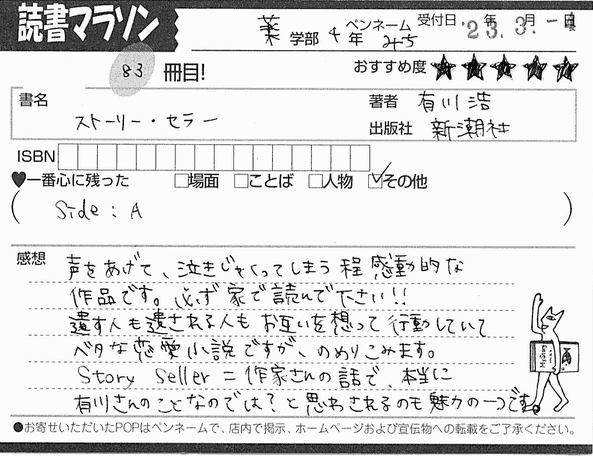 読書マラソン
薬学部 4年 ペンネーム みち 受付日 23年3月-1日
83冊目! おすすめ度 ★★★★★
書名 ストーリー・セラー
著者 有川浩
出版社 新潮社
ISBN
♥一番心に残った □場面 □ことば □人物 ☑その他
( Side : A )
感想 声をあげて、泣きじゃくってしまう程感動的な
作品です。必ず家で読んで下さい!!
遺す人も遺される人もお互いを想って行動していて
ベタな恋愛小説ですが、のめりこみます。
Story Seller = 作家さんの話で、本当に
有川さんのことなのでは?と思わされるのも魅力の一つです。
●お寄せいただいたPOPはペンネームで、店内で掲示、ホームページおよび宣伝物への転載をご了承ください。